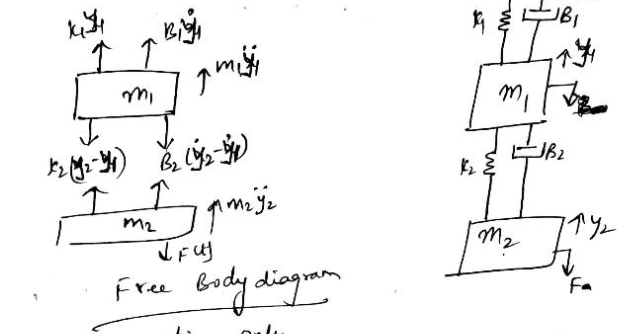 k₁y₁ B₁ẏ₁
m₁ÿ₁
m₁
k₂(y₂-y₁) B₂(ẏ₂-ẏ₁)
m₂ÿ₂
m₂
F(t)
Free Body diagram
k₁ B₁
y₁
m₁
k₂ B₂
m₂ y₂